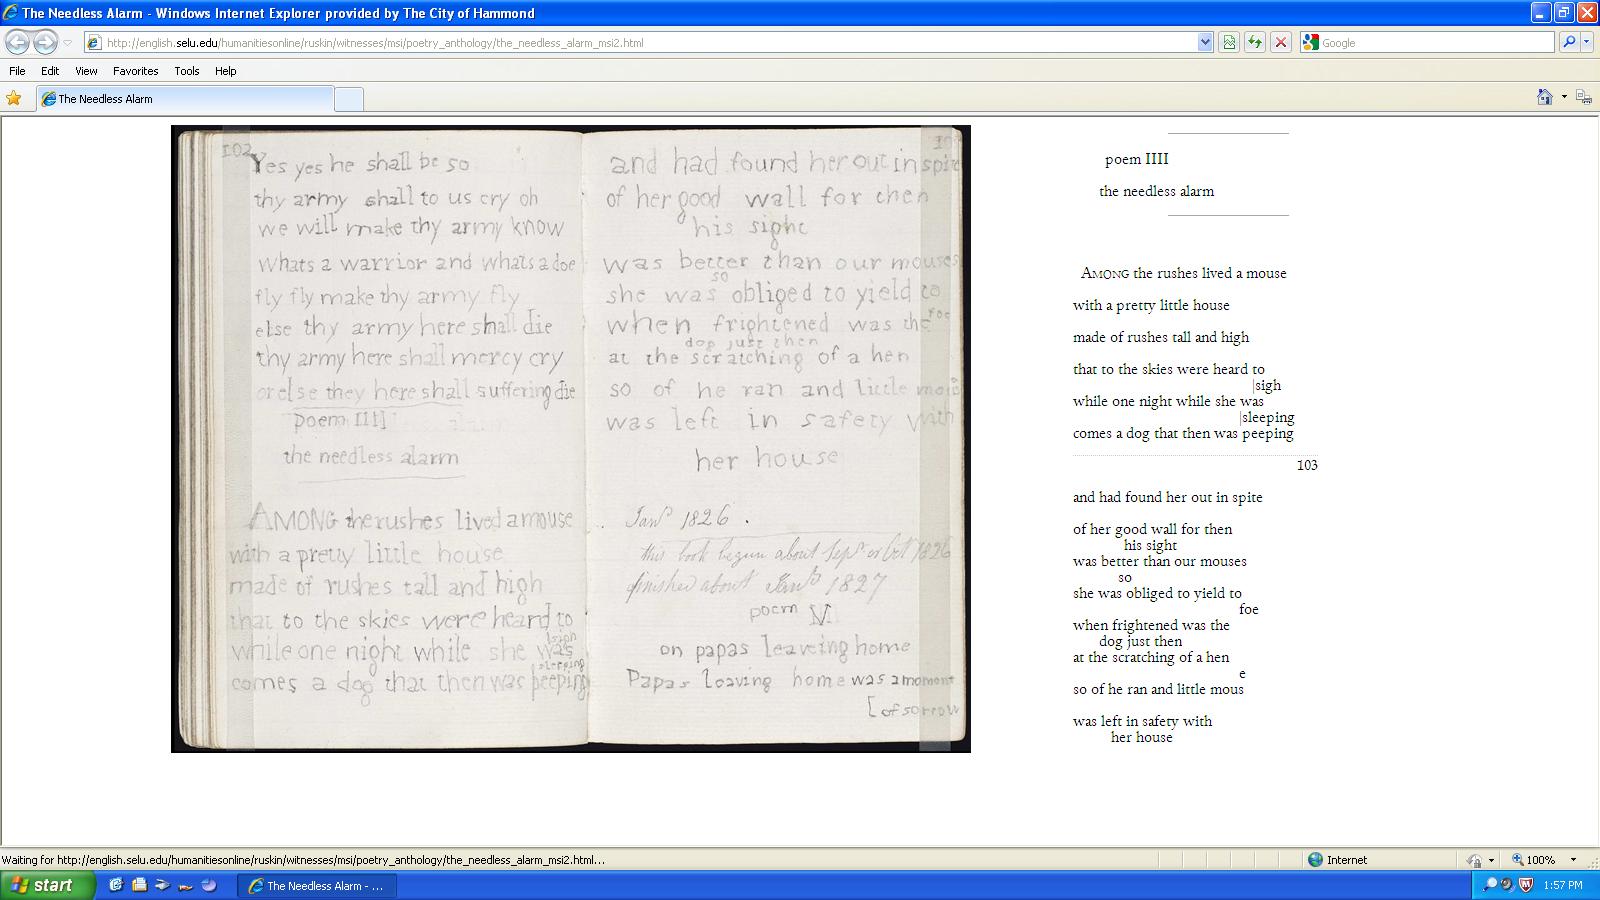 The Needless Alarm - Windows Internet Explorer provided by The City of Hammond
http://english.selu.edu/humanitiesonline/ruskin/witnesses/msi/poetry_anthology/the_needless_alarm_msi2.html
Google
File Edit View Favorites Tools Help
The Needless Alarm
102
Yes yes he shall be so
thy army shall to us cry oh
we will make thy army know
whats a warrior and whats a doe
fly fly make thy army fly
else thy army here shall die
thy army here shall mercy cry
or else they here shall suffering die
poem IIII
the needless alarm
AMONG the rushes lived a mouse
with a pretty little house
made of rushes tall and high
that to the skies were heard to
|sigh
while one night while she was
sleeping
comes a dog that then was peeping
and had found her out in spite
of her good wall for then
his sight
was better than our mouses
so
she was obliged to yield to
foe
when frightened was the
dog just then
at the scratching of a hen
so of he ran and little mouse
was left in safety with
her house
Jany 1826.
this book begun about Sepr or Oct 1826
finished about Jany 1827
poem
on papas leaveing home
Papas leaving home was a moment
[of sorrow
poem IIII
the needless alarm
AMONG the rushes lived a mouse
with a pretty little house
made of rushes tall and high
that to the skies were heard to
|sigh
while one night while she was
|sleeping
comes a dog that then was peeping
103
and had found her out in spite
of her good wall for then
his sight
was better than our mouses
so
she was obliged to yield to
foe
when frightened was the
dog just then
at the scratching of a hen
e
so of he ran and little mous
was left in safety with
her house
Waiting for http://english.selu.edu/humanitiesonline/ruskin/witnesses/msi/poetry_anthology/the_needless_alarm_msi2.html...
Internet
100%
start
The Needless Alarm - ...
1:57 PM